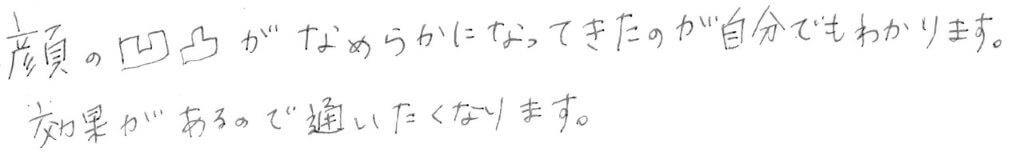 顔の凹凸がなめらかになってきたのが自分でもわかります。
効果があるので通いたくなります。